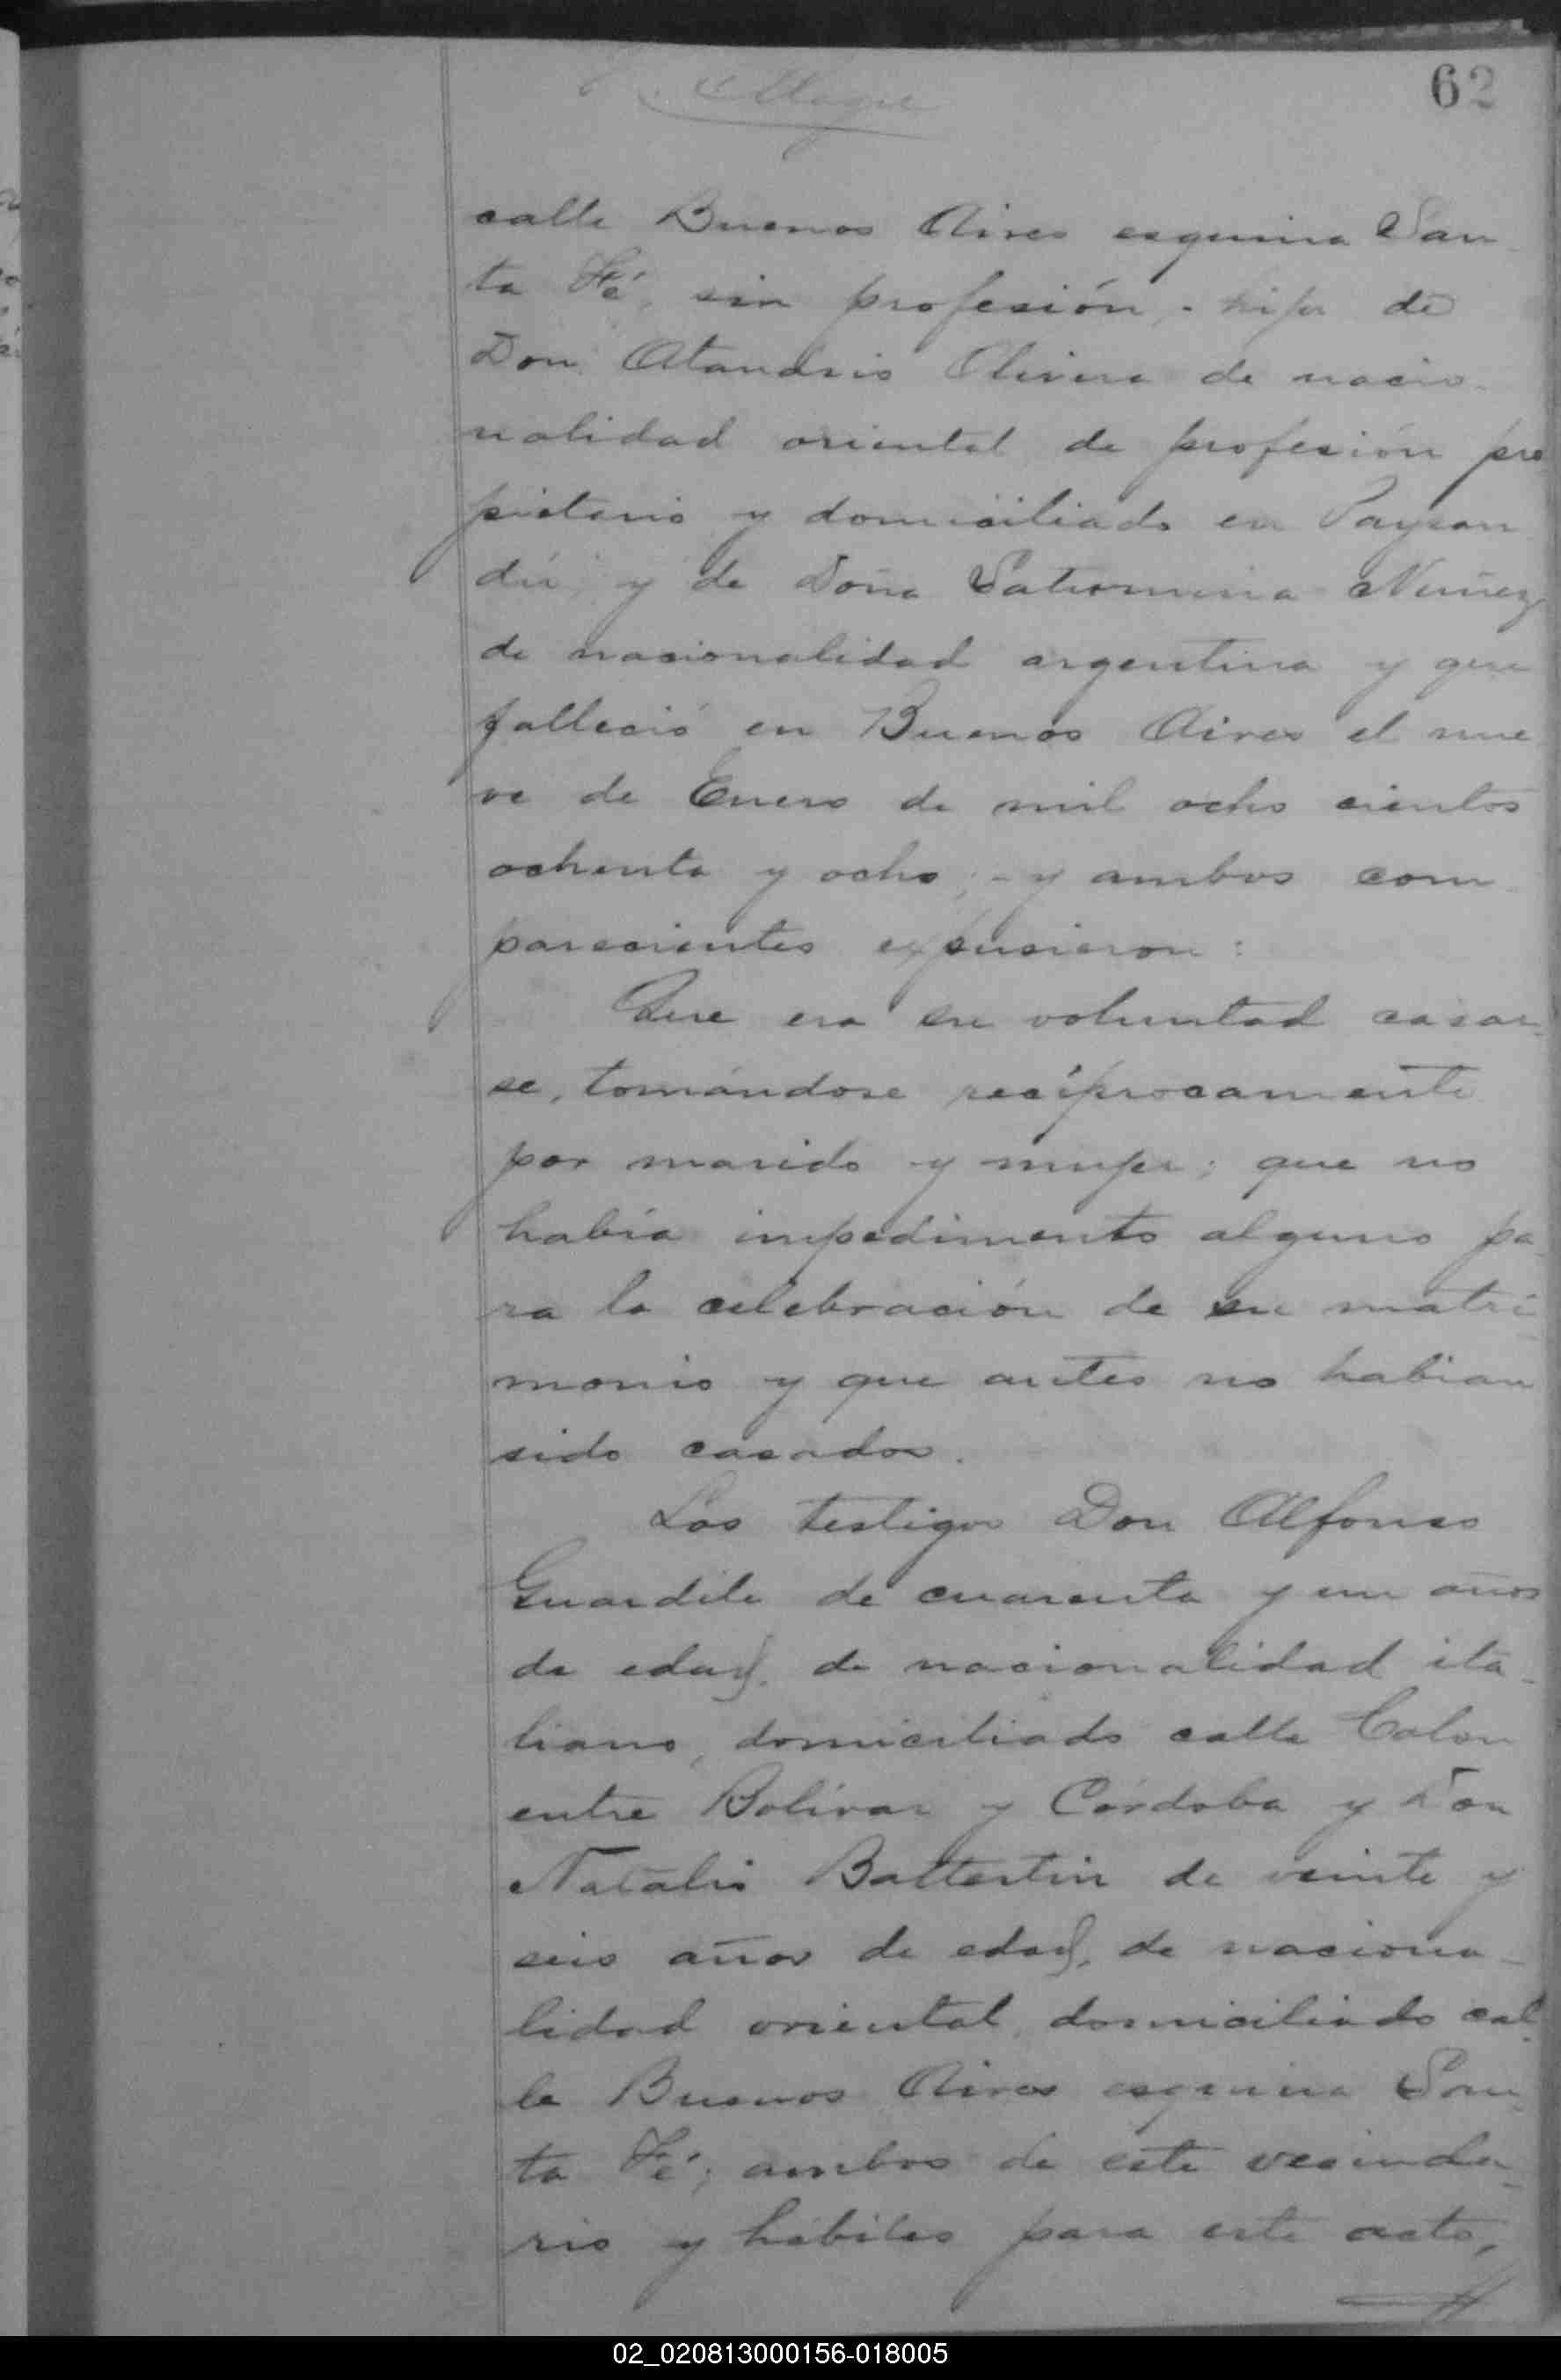 62
calle Buenos Aires esquina San
ta Fé, sin profesión, - hija de
Don Atandris Olivera de nacio-
nalidad oriental de profesión pro
pietario y domiciliado en Paysan
dú y de Doña Saturnina Nuñez
de nacionalidad argentina y que
falleció en Buenos Aires el nue
ve de Enero de mil ocho cientos
ochenta y ocho; - y ambos com
parecientes expusieron:
Que era su voluntad casar-
se, tomándose recíprocamente
por marido y mujer; que no
había impedimento alguno pa-
ra la celebración de su matri-
monio y que antes no habian
sido casados.
Los testigos Don Alfonso
Guardile de cuarenta y un años
de edad, de nacionalidad ita-
liano, domiciliado calle Colon
entre Bolívar y Córdoba y Don
Natalio Battestin de veinte y
seis años de edad, de naciona-
lidad oriental, domiciliado cal-
le Buenos Aires esquina San-
ta Fé; ambos de este vecinda-
rio y hábiles para este acto,
02_020813000156-018005